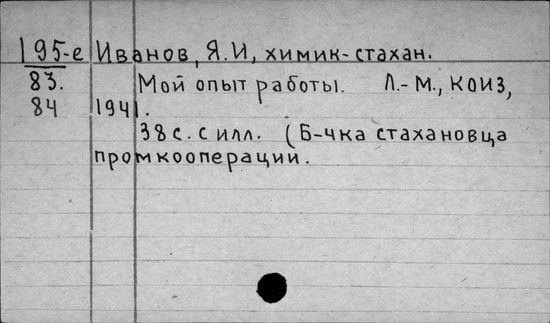 195-е Иванов, Я.И, химик-стахан.
83. Мой опыт работы. Л.-М., КОИЗ,
84 1941.
38 с. с илл. (Б-чка стахановца
промкооперации.